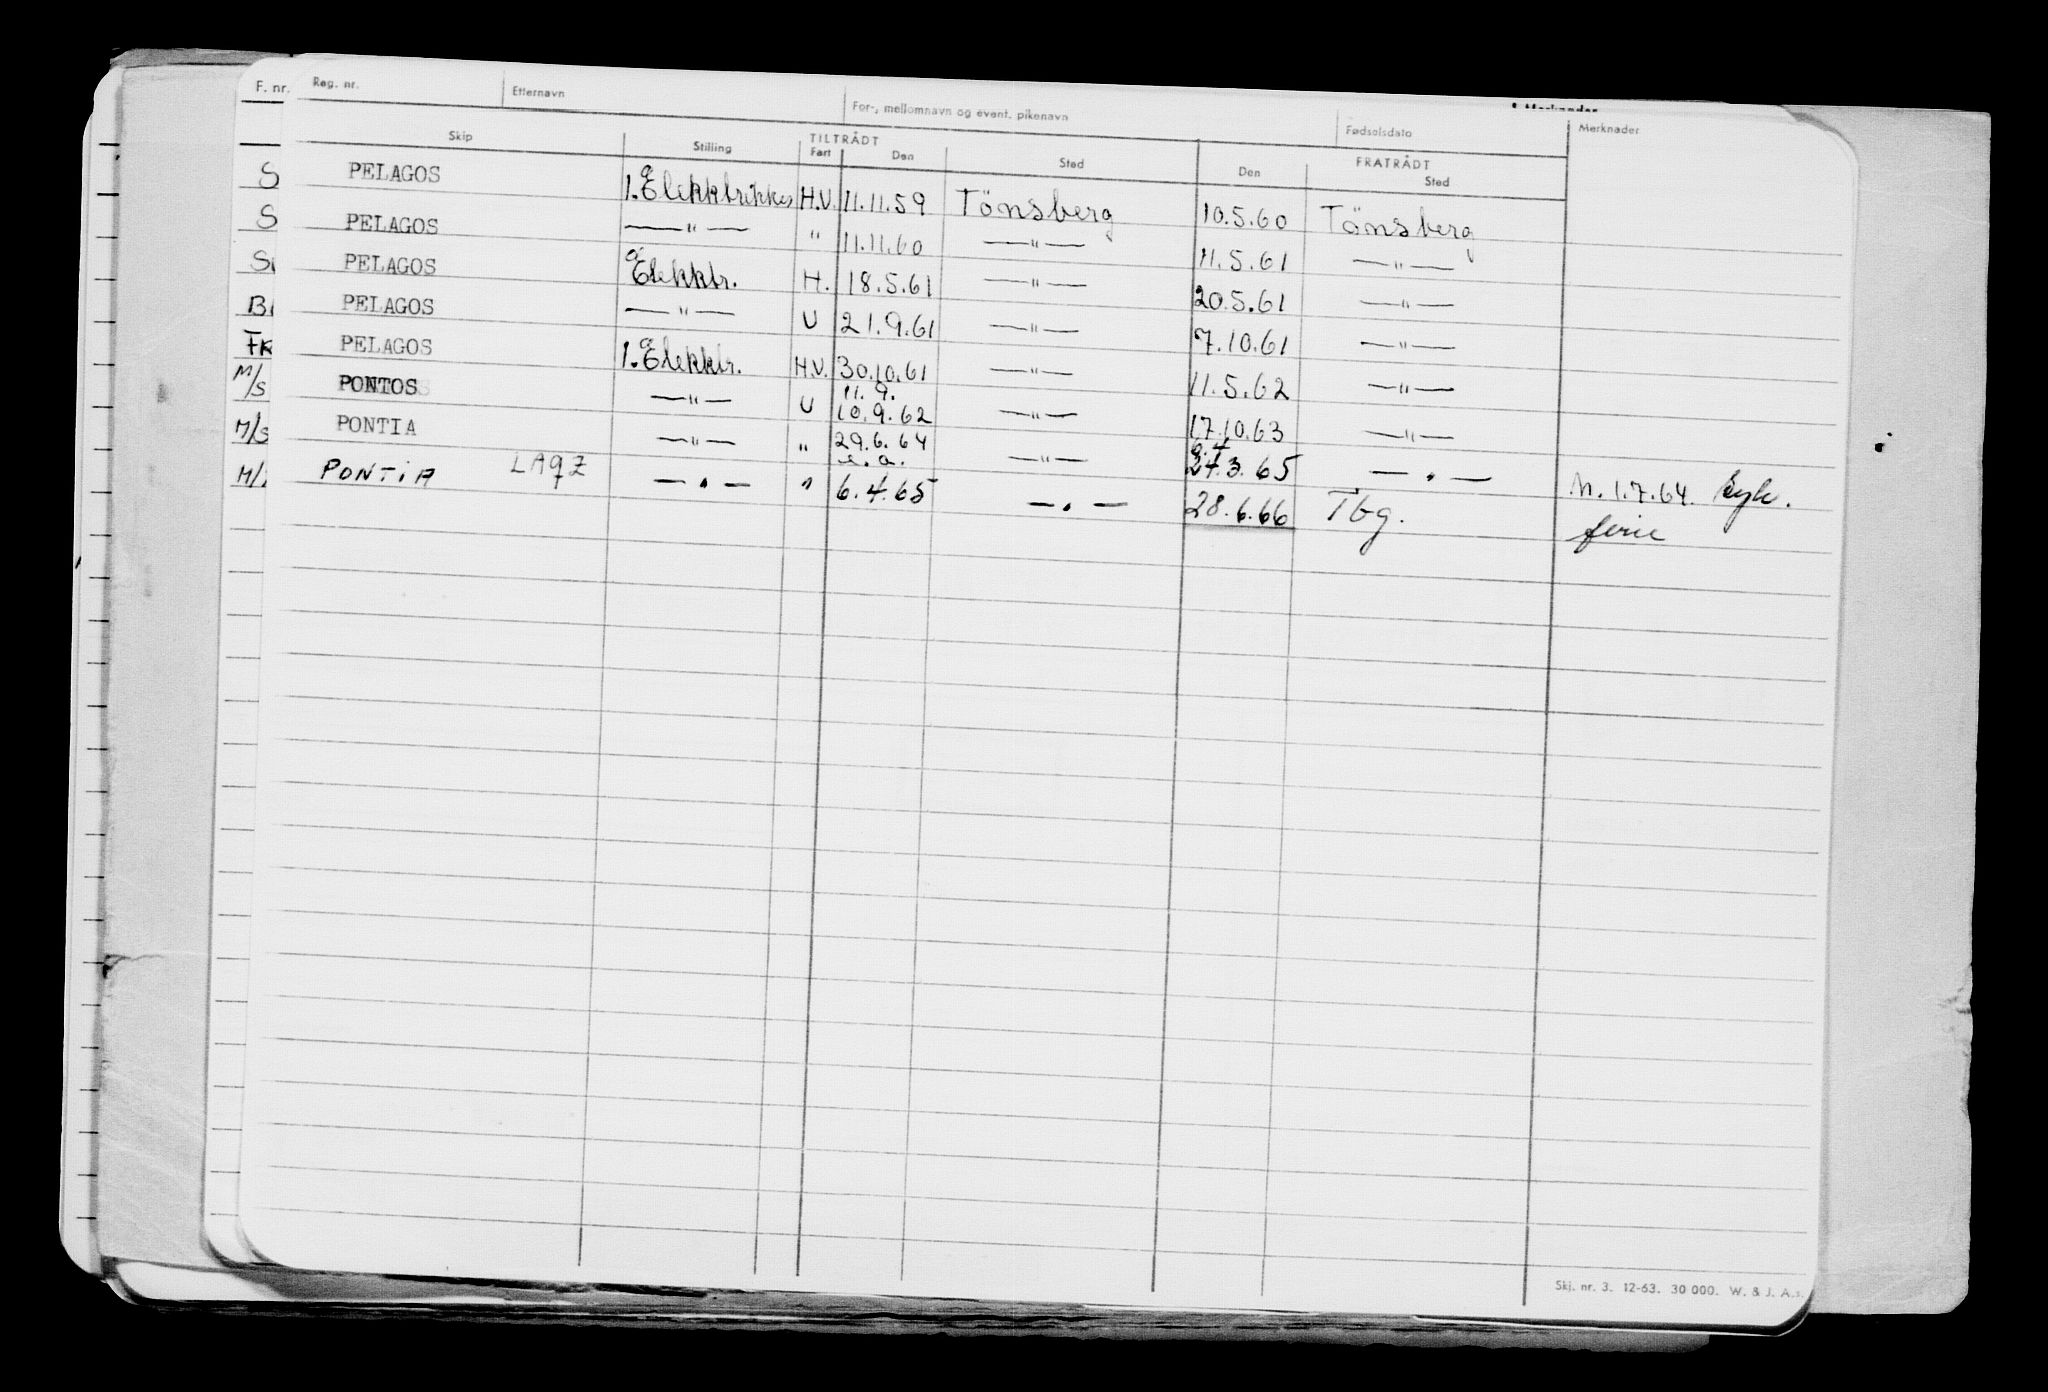 F. nr. Reg. nr. Etternavn For-, mellomnavn og event. pikenavn Fødselsdato Merknader
TILTRÅDT FRATRÅDT
Skip Stilling Fart Den Sted Den Sted
S PELAGOS 1. Elekktrikker H.V. 11.11.59 Tönsberg 10.5.60 Tönsberg
S PELAGOS —"— " 11.11.60 —"— 11.5.61 —"—
S PELAGOS Elekktr. H. 18.5.61 —"— 20.5.61 —"—
B PELAGOS —"— U 21.9.61 —"— 7.10.61 —"—
PELAGOS 1. Elekktr. H.V. 30.10.61 —"— 11.5.62 —"—
11.9.
M/S PONTOS —"— U 10.9.62 —"— 17.10.63 —"—
M/S PONTIA —"— " 29.6.64 —"— 24.3.65 —"— M. 1.7.64. syk.
M/ PONTIA LAQZ —"— " 6.4.65 —"— 28.6.66 Tbg. ferie
Skj. nr. 3. 12-63. 30 000. W. & J. A.s.